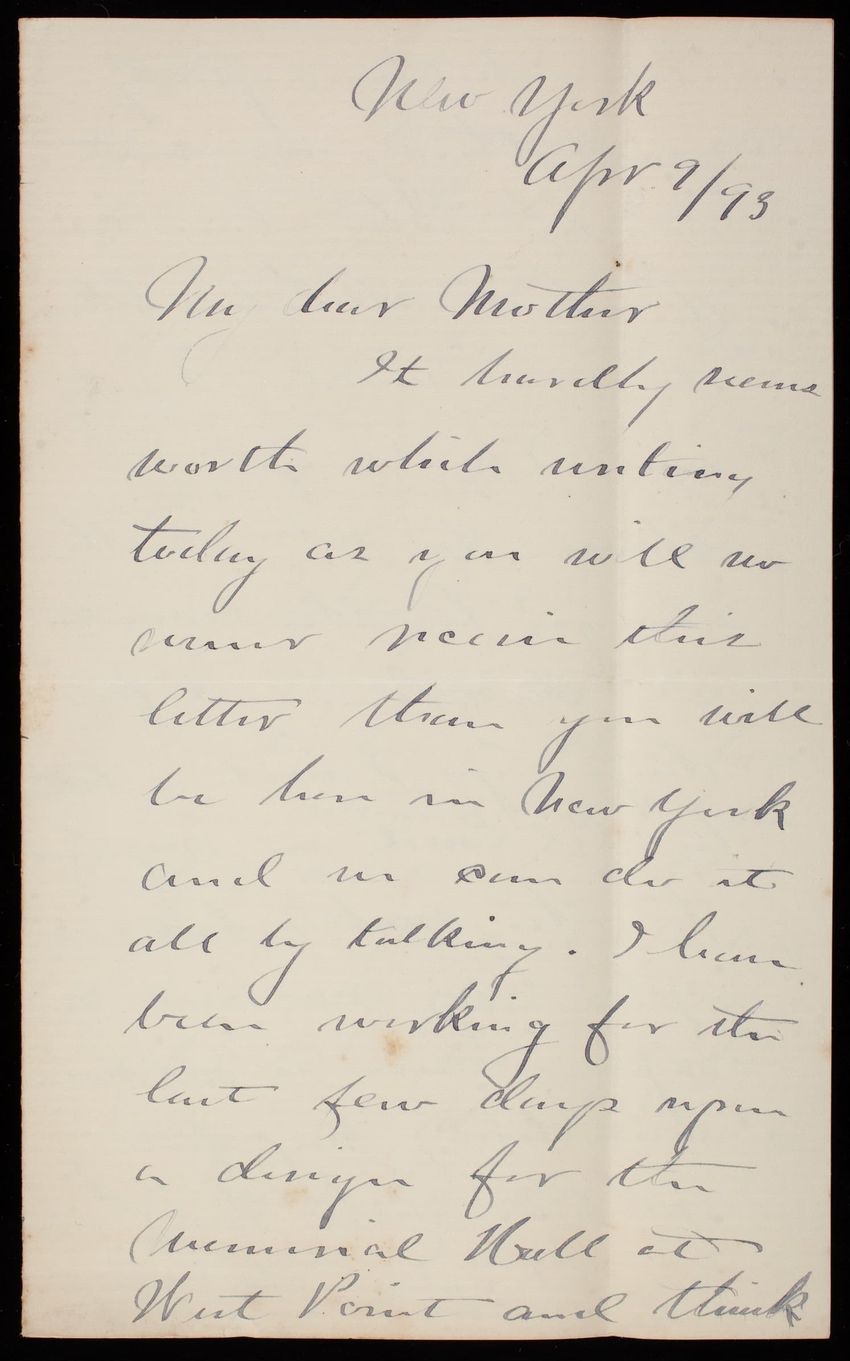 New York
Apr 9/93
My dear Mother
It hardly seems
worth while writing
today as you will no
sooner receive this
letter than you will
be here in New York
and we can do it
all by talking. I have
been working for the
last few days upon
a design for the
Memorial Hall at
West Point and think